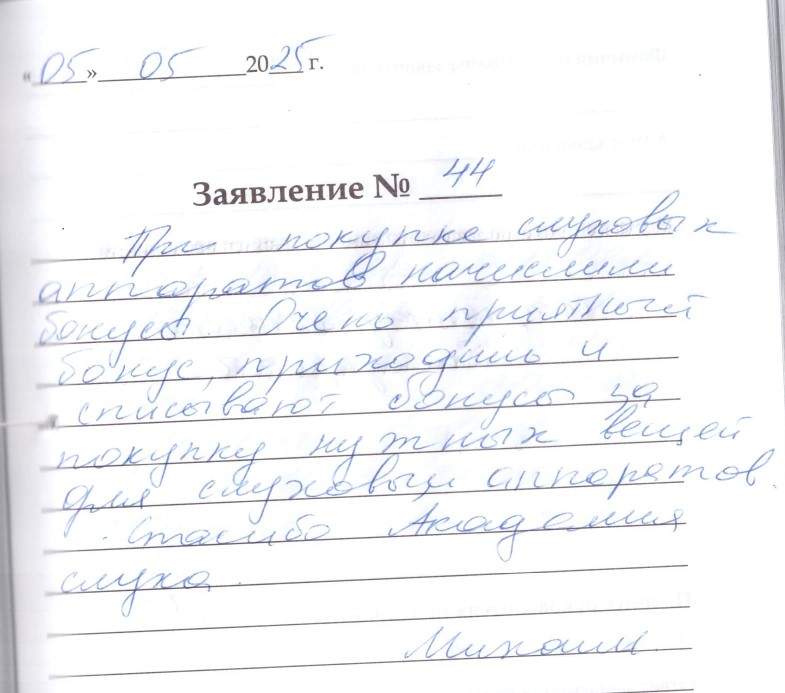 «05» 05 2025 г.
Заявление № 44
При покупке слуховых
аппаратов начислили
бонусы. Очень приятный
бонус, приходишь и
списывают бонусы за
покупку нужных вещей
для слуховых аппаратов.
Спасибо Академия
слуха.
Михаил.